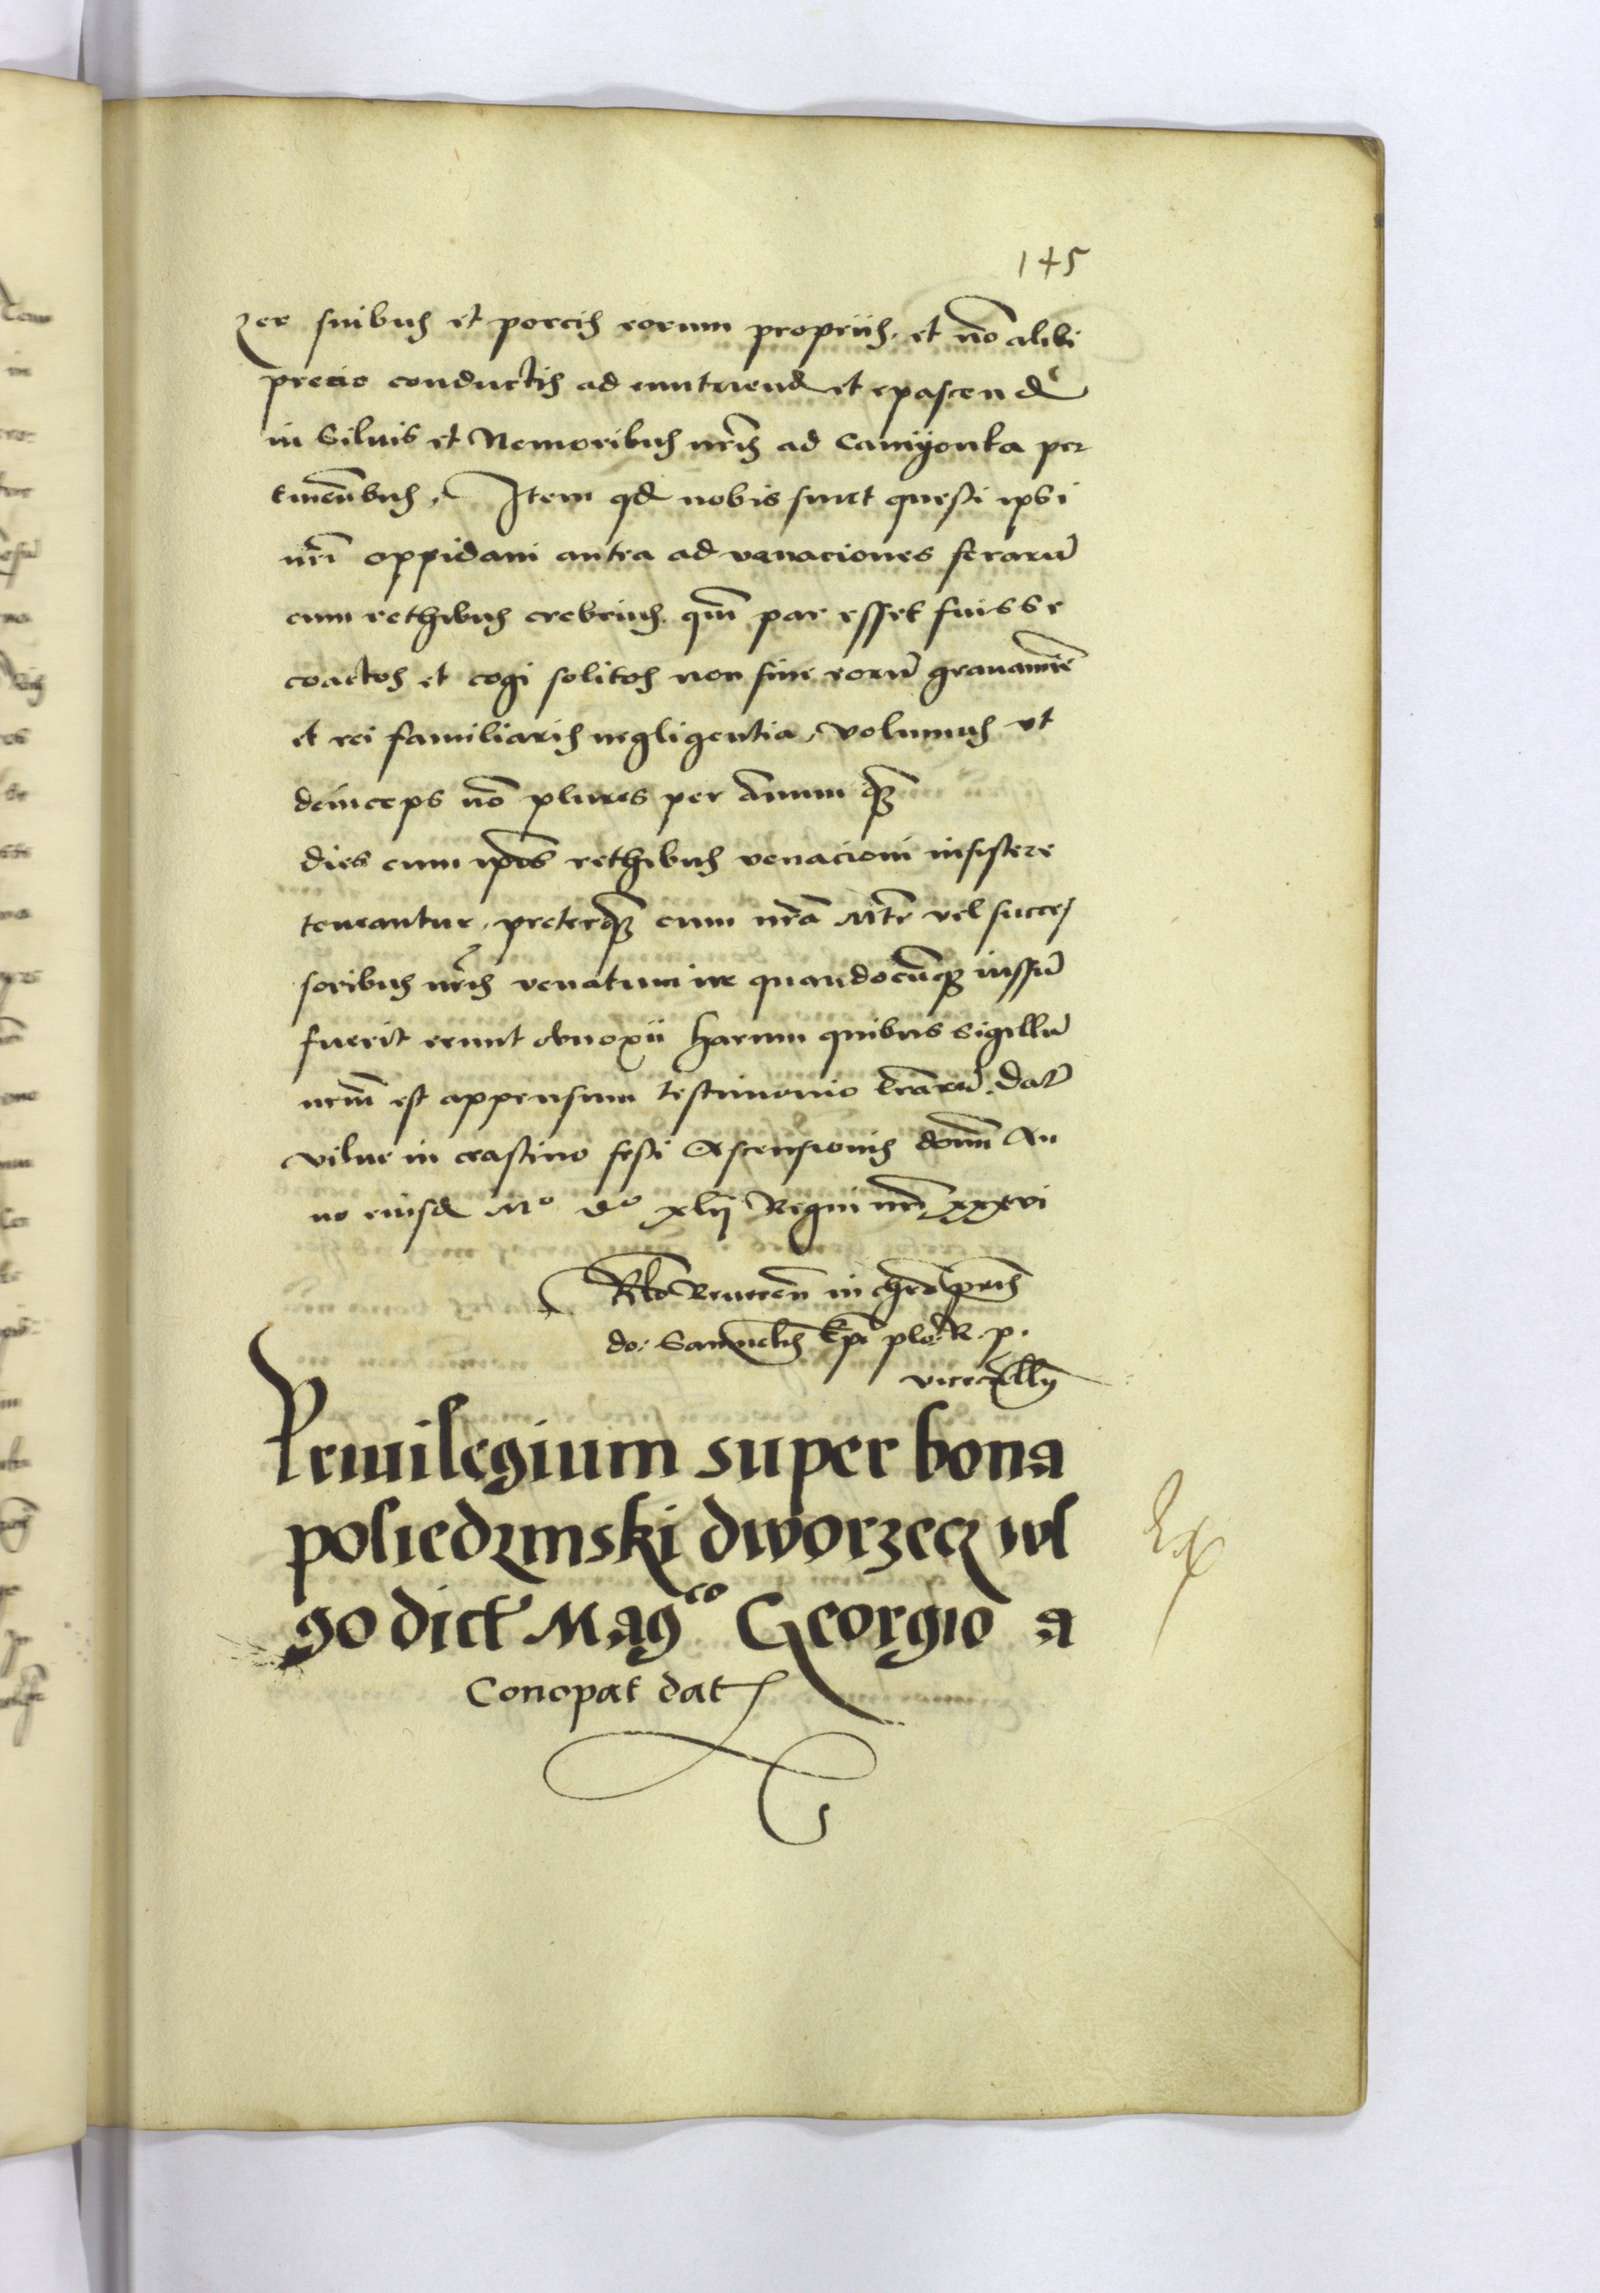 145
zer suibus et porcis eorum propriis. et nō alibi
precio conductis ad enutriend et epascend
in Siluis et Nemoribus nr̄is ad Camyonka per
tinen̄bus. Item qd nobis sunt questi ipsi
nr̄i oppidani antea ad venaciones ferarū
cum rethibus crebrius qm̄ par esset fuisse
coactos et cogi solitos non sine eorū grauamīe
et rei familiaris negligentia, volumus vt
deinceps nō plures per Annum qz
dies cum ip̄os rethibus venacioni insistere
teneantur, preterqz cum nr̄a Mte vel succes
soribus nr̄is venatum ire quandocūqz iussū
fuerit erunt obnoxii harum quibus sigillū
nr̄m est appensum testimonio lr̄arū. Dat
vilne in crastino festi Ascensionis domī An
no eiusd Mo do xlij Regni nr̄i xxxvi
Rlo Reueren in chro pris
do: Samuelis Epi ploc R. p.
vicecellij
Priuilegium super bona
poliedzinski dworzecz wl
go dict Magco Georgio a
Conopat dat
Ex